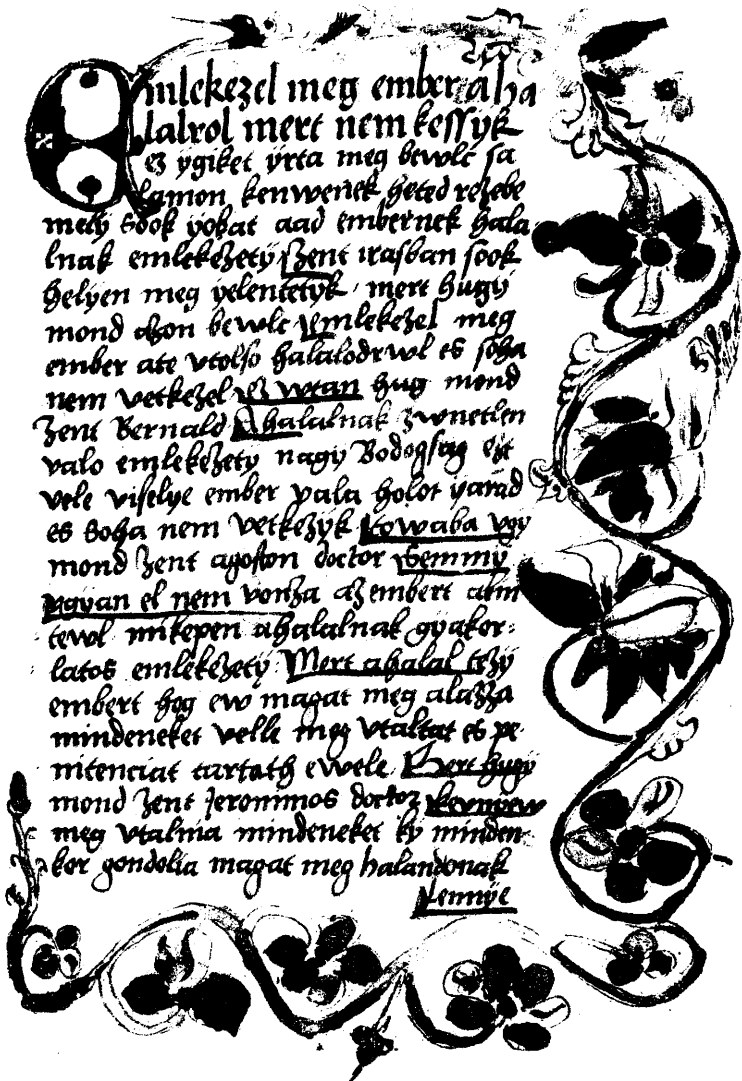 Emlekezel meg ember aha
lalrol mert nem kessyk
ez ygiket yrta meg bewlc sa
lamon kenwenek heted rezebe
mely Sook yobat aad embernek hala
lnak emlekezety Szent irasban sook
helyen meg yelentetyk mert hugy
mond azon bewlc Emlekezel meg
ember ate vtolso halalodrwl es soha
nem vetkezel ez wtan hug mond
Zent Bernald Ahalalnak zwnetlen
valo emlekezety nagy Bodogsag ezt
vele viselye ember yala holot yarad
es Soha nem vetkezyk towaba vgy
mond Zent agoston doctor Semmy
vgyan el nem vonza azembert alni
tewl mikepen ahalalnak gyakor
latos emlekezety Mert ahalal tezy
embert hog ew magat meg alazza
mindeneket velle meg vtaltat es pe
nitenciat tartath ewele Mert hugy
mond Zent Jeronimos doctor kenyew
meg vtalnia mindeneket ky minden
kor gondolia magat meg halandonak
lennye